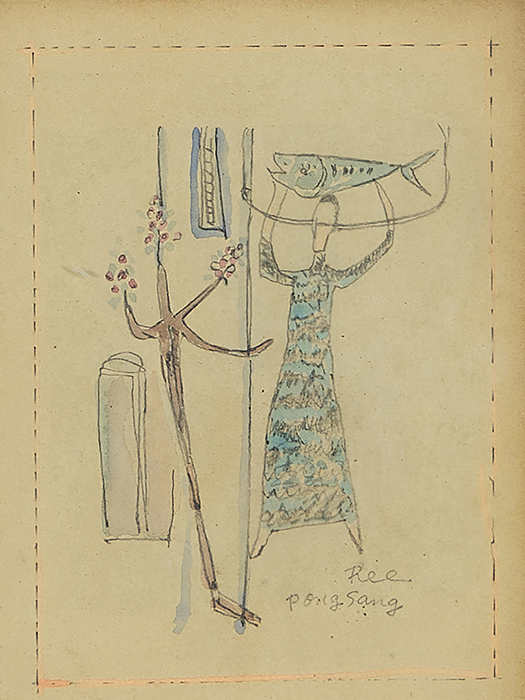 Ree
pongSang